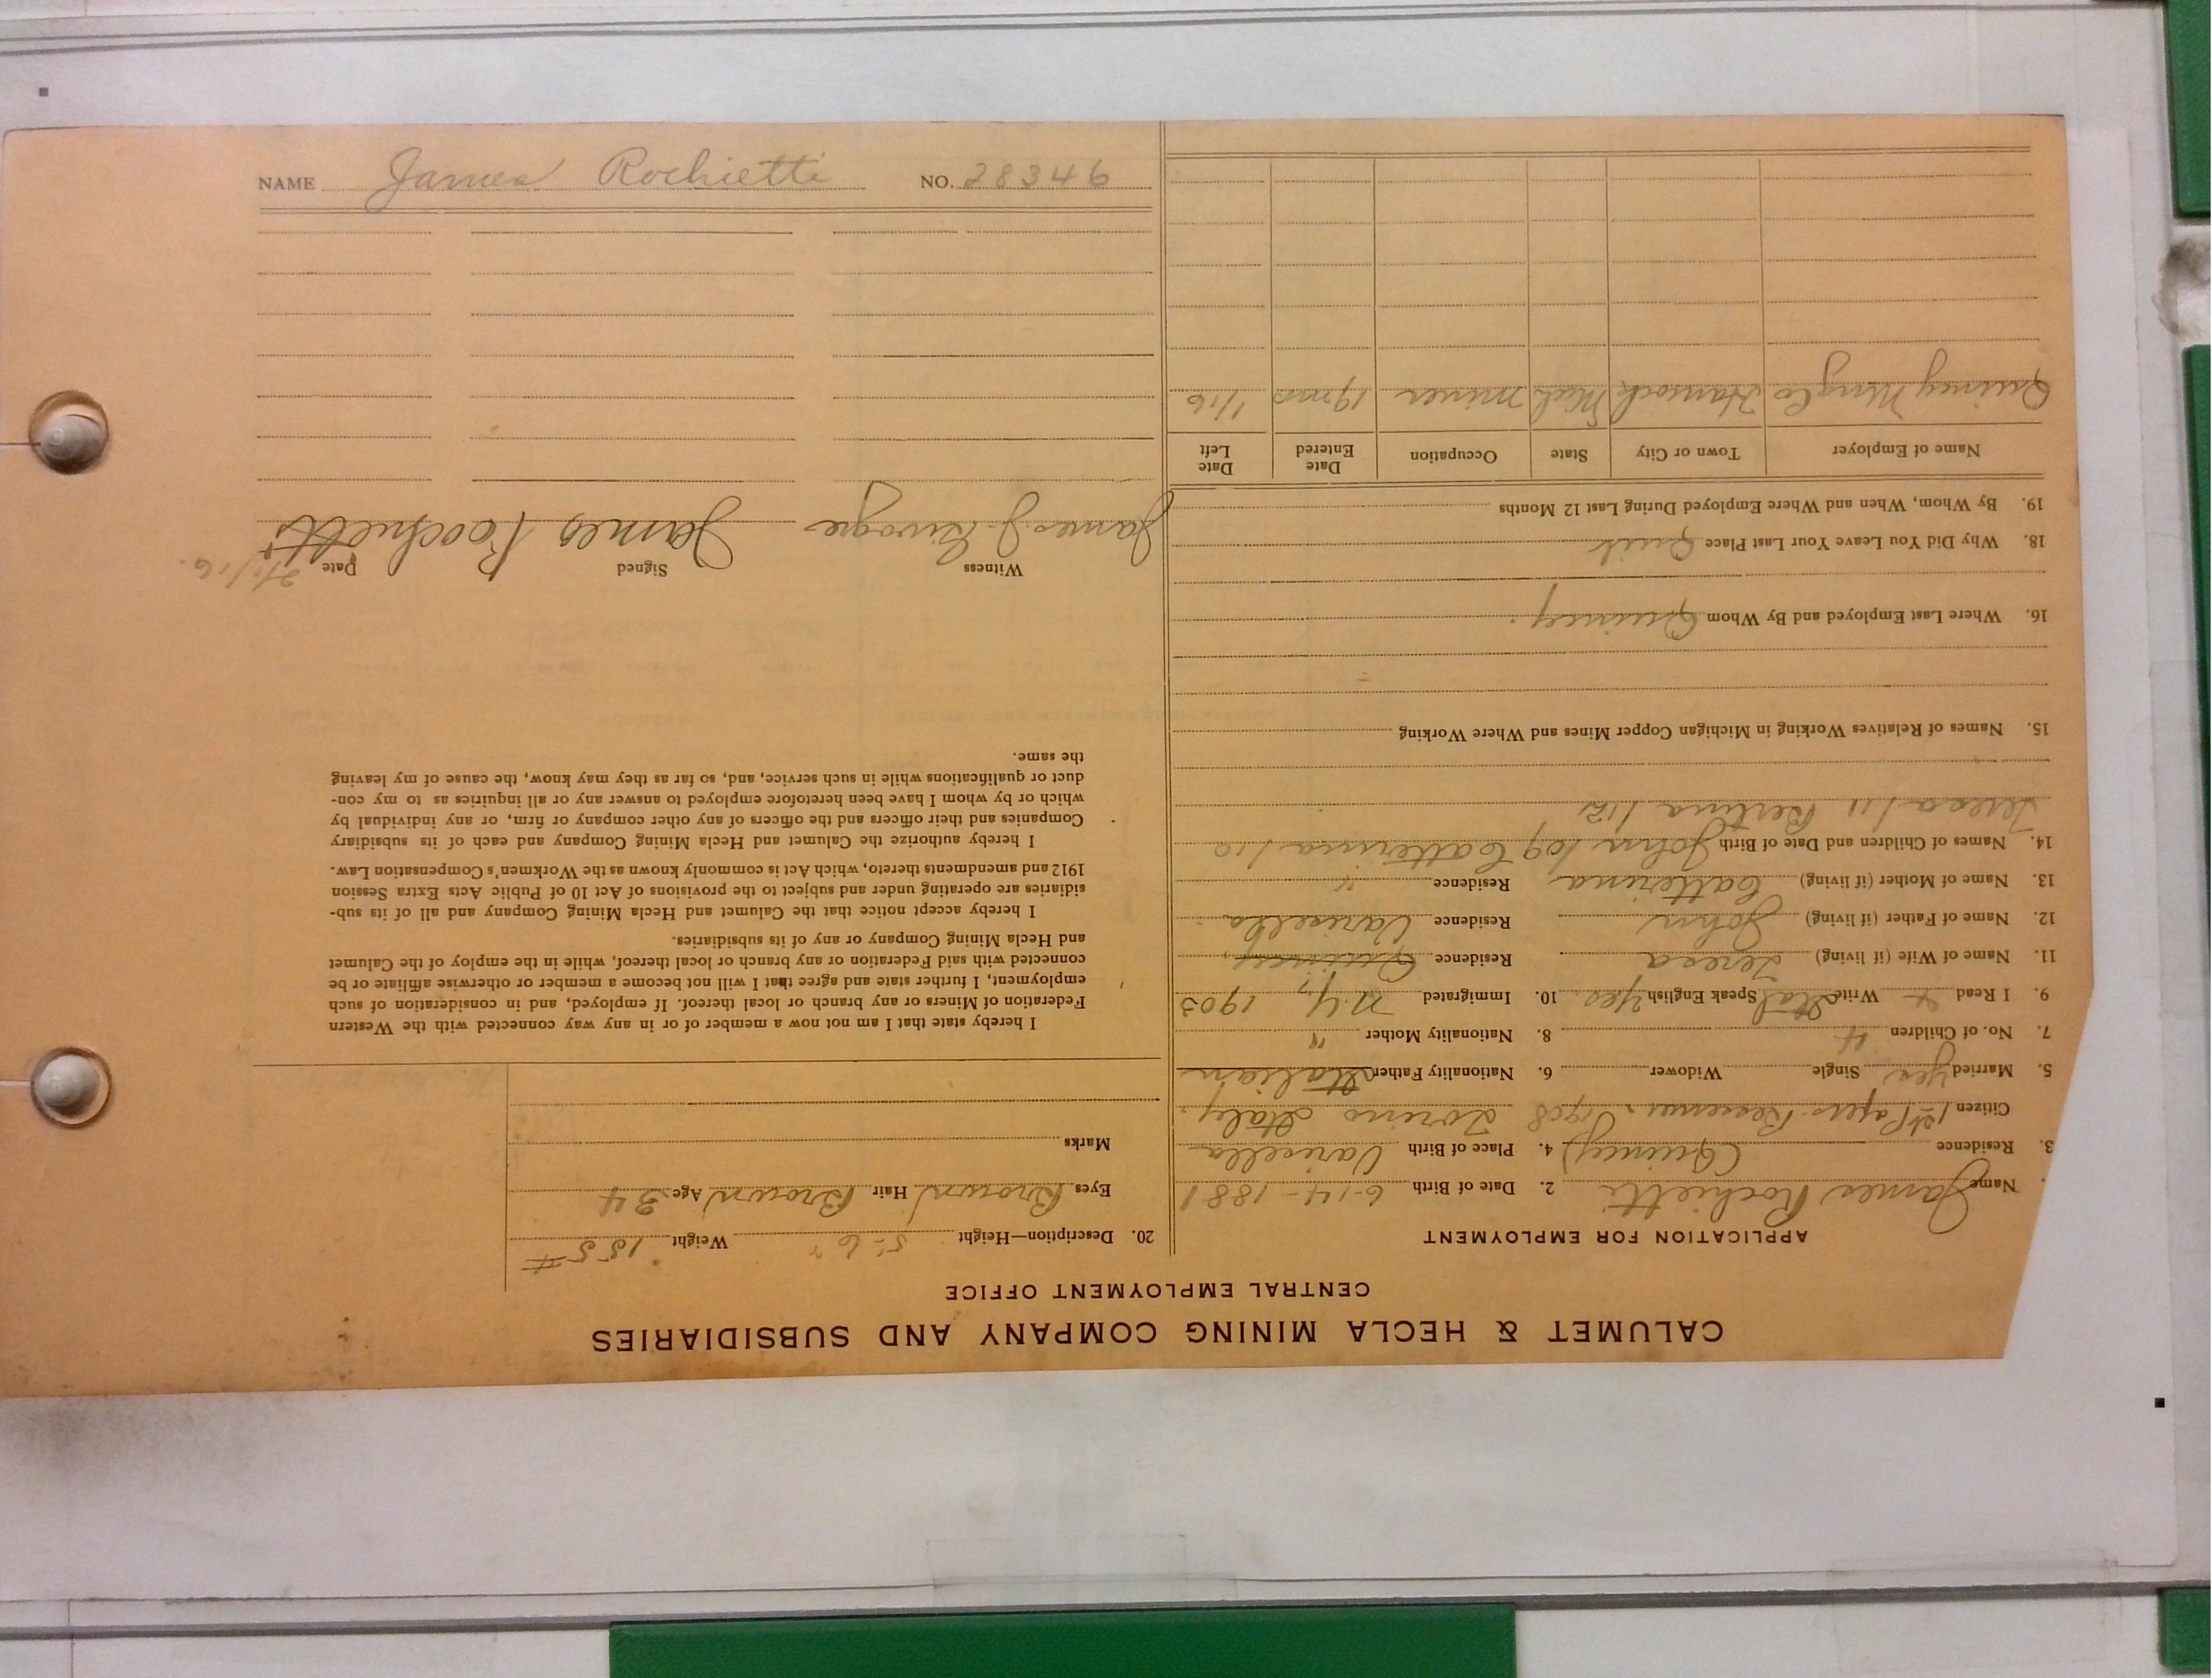 NAME James Rochietti NO. 28346
CALUMET & HECLA MINING COMPANY AND SUBSIDIARIES
CENTRAL EMPLOYMENT OFFICE
APPLICATION FOR EMPLOYMENT
Name James Rochietti 2. Date of Birth 6-14-1881
3. Residence (Quincy) 4. Place of Birth Varisella
Citizen 1st Papers Bessemer 1908 Torino Italy
5. Married yes Single Widower 6. Nationality Father Italian
7. No. of Children 4 8. Nationality Mother "
9. I Read + Write Ital Speak English Yes 10. Immigrated N.Y. 1903
11. Name of Wife (if living) Teresa Residence Quincy
12. Name of Father (if living) John Residence Varisella
13. Name of Mother (if living) Catterina Residence "
14. Names of Children and Date of Birth John /09 Catterina /10
Teresa /11 Bertina /13
15. Names of Relatives Working in Michigan Copper Mines and Where Working
16. Where Last Employed and By Whom Quincy.
18. Why Did You Leave Your Last Place Quit
19. By Whom, When and Where Employed During Last 12 Months
Name of Employer Town or City State Occupation Date Entered Date Left
Quincy Mng Co Hancock Mich miner 19 mos 1/16
20. Description—Height 5'-6" Weight 155 #
Eyes Brown Hair Brown Age 34
Marks
I hereby state that I am not now a member of or in any way connected with the Western
Federation of Miners or any branch or local thereof. If employed, and in consideration of such
employment, I further state and agree that I will not become a member or otherwise affiliate or be
connected with said Federation or any branch or local thereof, while in the employ of the Calumet
and Hecla Mining Company or any of its subsidiaries.
I hereby accept notice that the Calumet and Hecla Mining Company and all of its sub-
sidiaries are operating under and subject to the provisions of Act 10 of Public Acts Extra Session
1912 and amendments thereto, which Act is commonly known as the Workmen's Compensation Law.
I hereby authorize the Calumet and Hecla Mining Company and each of its subsidiary
Companies and their officers and the officers of any other company or firm, or any individual by
which or by whom I have been heretofore employed to answer any or all inquiries as to my con-
duct or qualifications while in such service, and, so far as they may know, the cause of my leaving
the same.
Witness Signed Date 2/1/16.
James J. James Rochietti